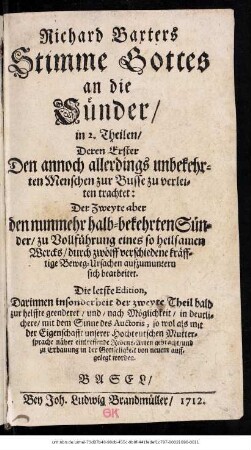 Richard Baxters
Stimme Gottes
an die
Sünder/
in 2. Theilen/
Deren Erster
Den annoch allerdings unbekehr-
ten Menschen zur Busse zu verlei-
ten trachtet:
Der Zweyte aber
den nunmehr halb-bekehrten Sün-
der/ zu Vollführung eines so heilsamen
Wercks/ durch zwölff verschiedene kräff-
tige Beweg-Ursachen aufzumuntern
sich bearbeitet.
Die letste Edition,
Darinnen insonderheit der zweyte Theil bald
zur helffte geendert/ und/ nach Möglichkeit/ in deutli-
chere/ mit dem Sinne des Auctoris, so wol als mit
der Eigenschafft unserer Hochteutschen Mutter-
sprache näher eintreffende Redens-Arten gebracht/ und
zu Erbauung in der Gottseligkeit von neuem auf-
gelegt worden.
BASEL/
Bey Joh. Ludwig Brandmüller/ 1712.
GK